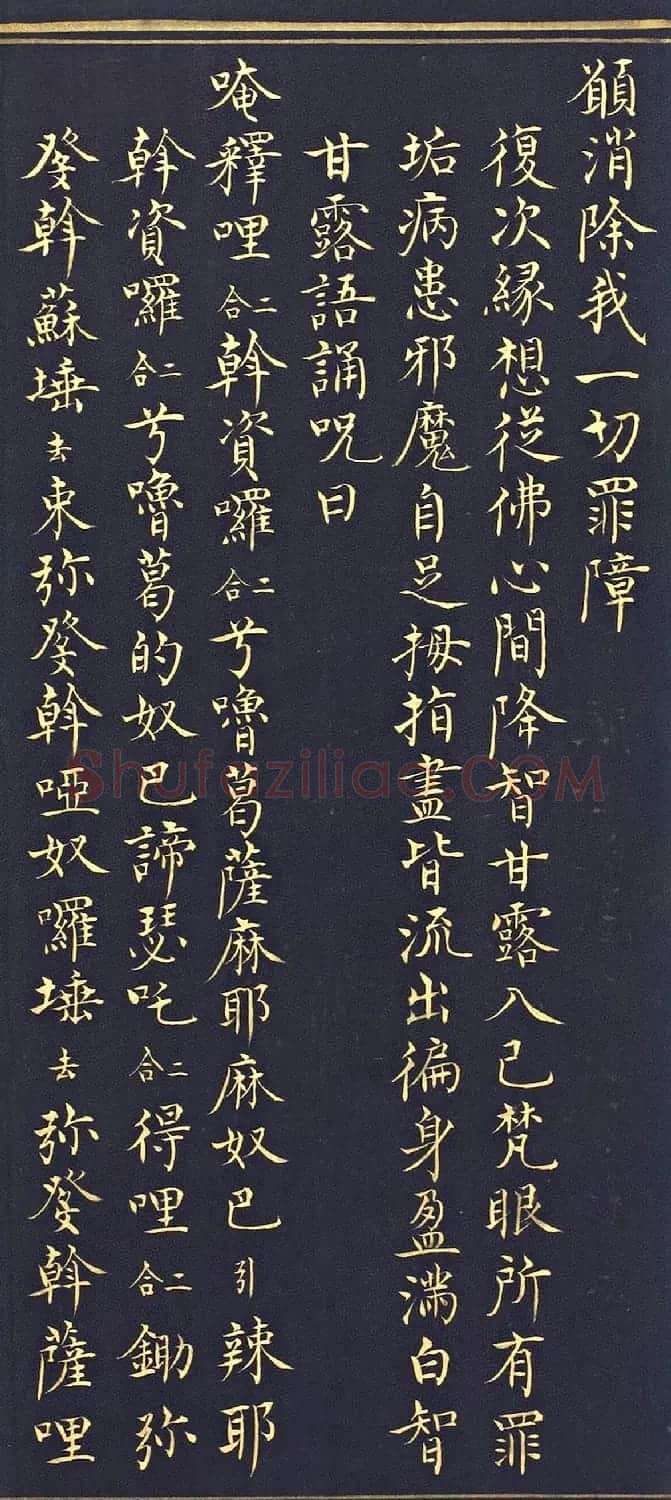 願消除我一切罪障
復次緣想從佛心間降智甘露入己梵眼所有罪
垢病患邪魔自足拇指盡皆流出徧身盈滿白智
甘露語誦呪曰
唵釋哩二合斡資囉二合吽嚕葛薩麻耶麻奴巴引辣耶
斡資囉二合吽嚕葛的奴巴諦瑟吒二合得哩二合鋤弥
發斡蘇埵去東弥發斡啞奴囉埵去弥發斡薩哩
Shufaziliao.COM